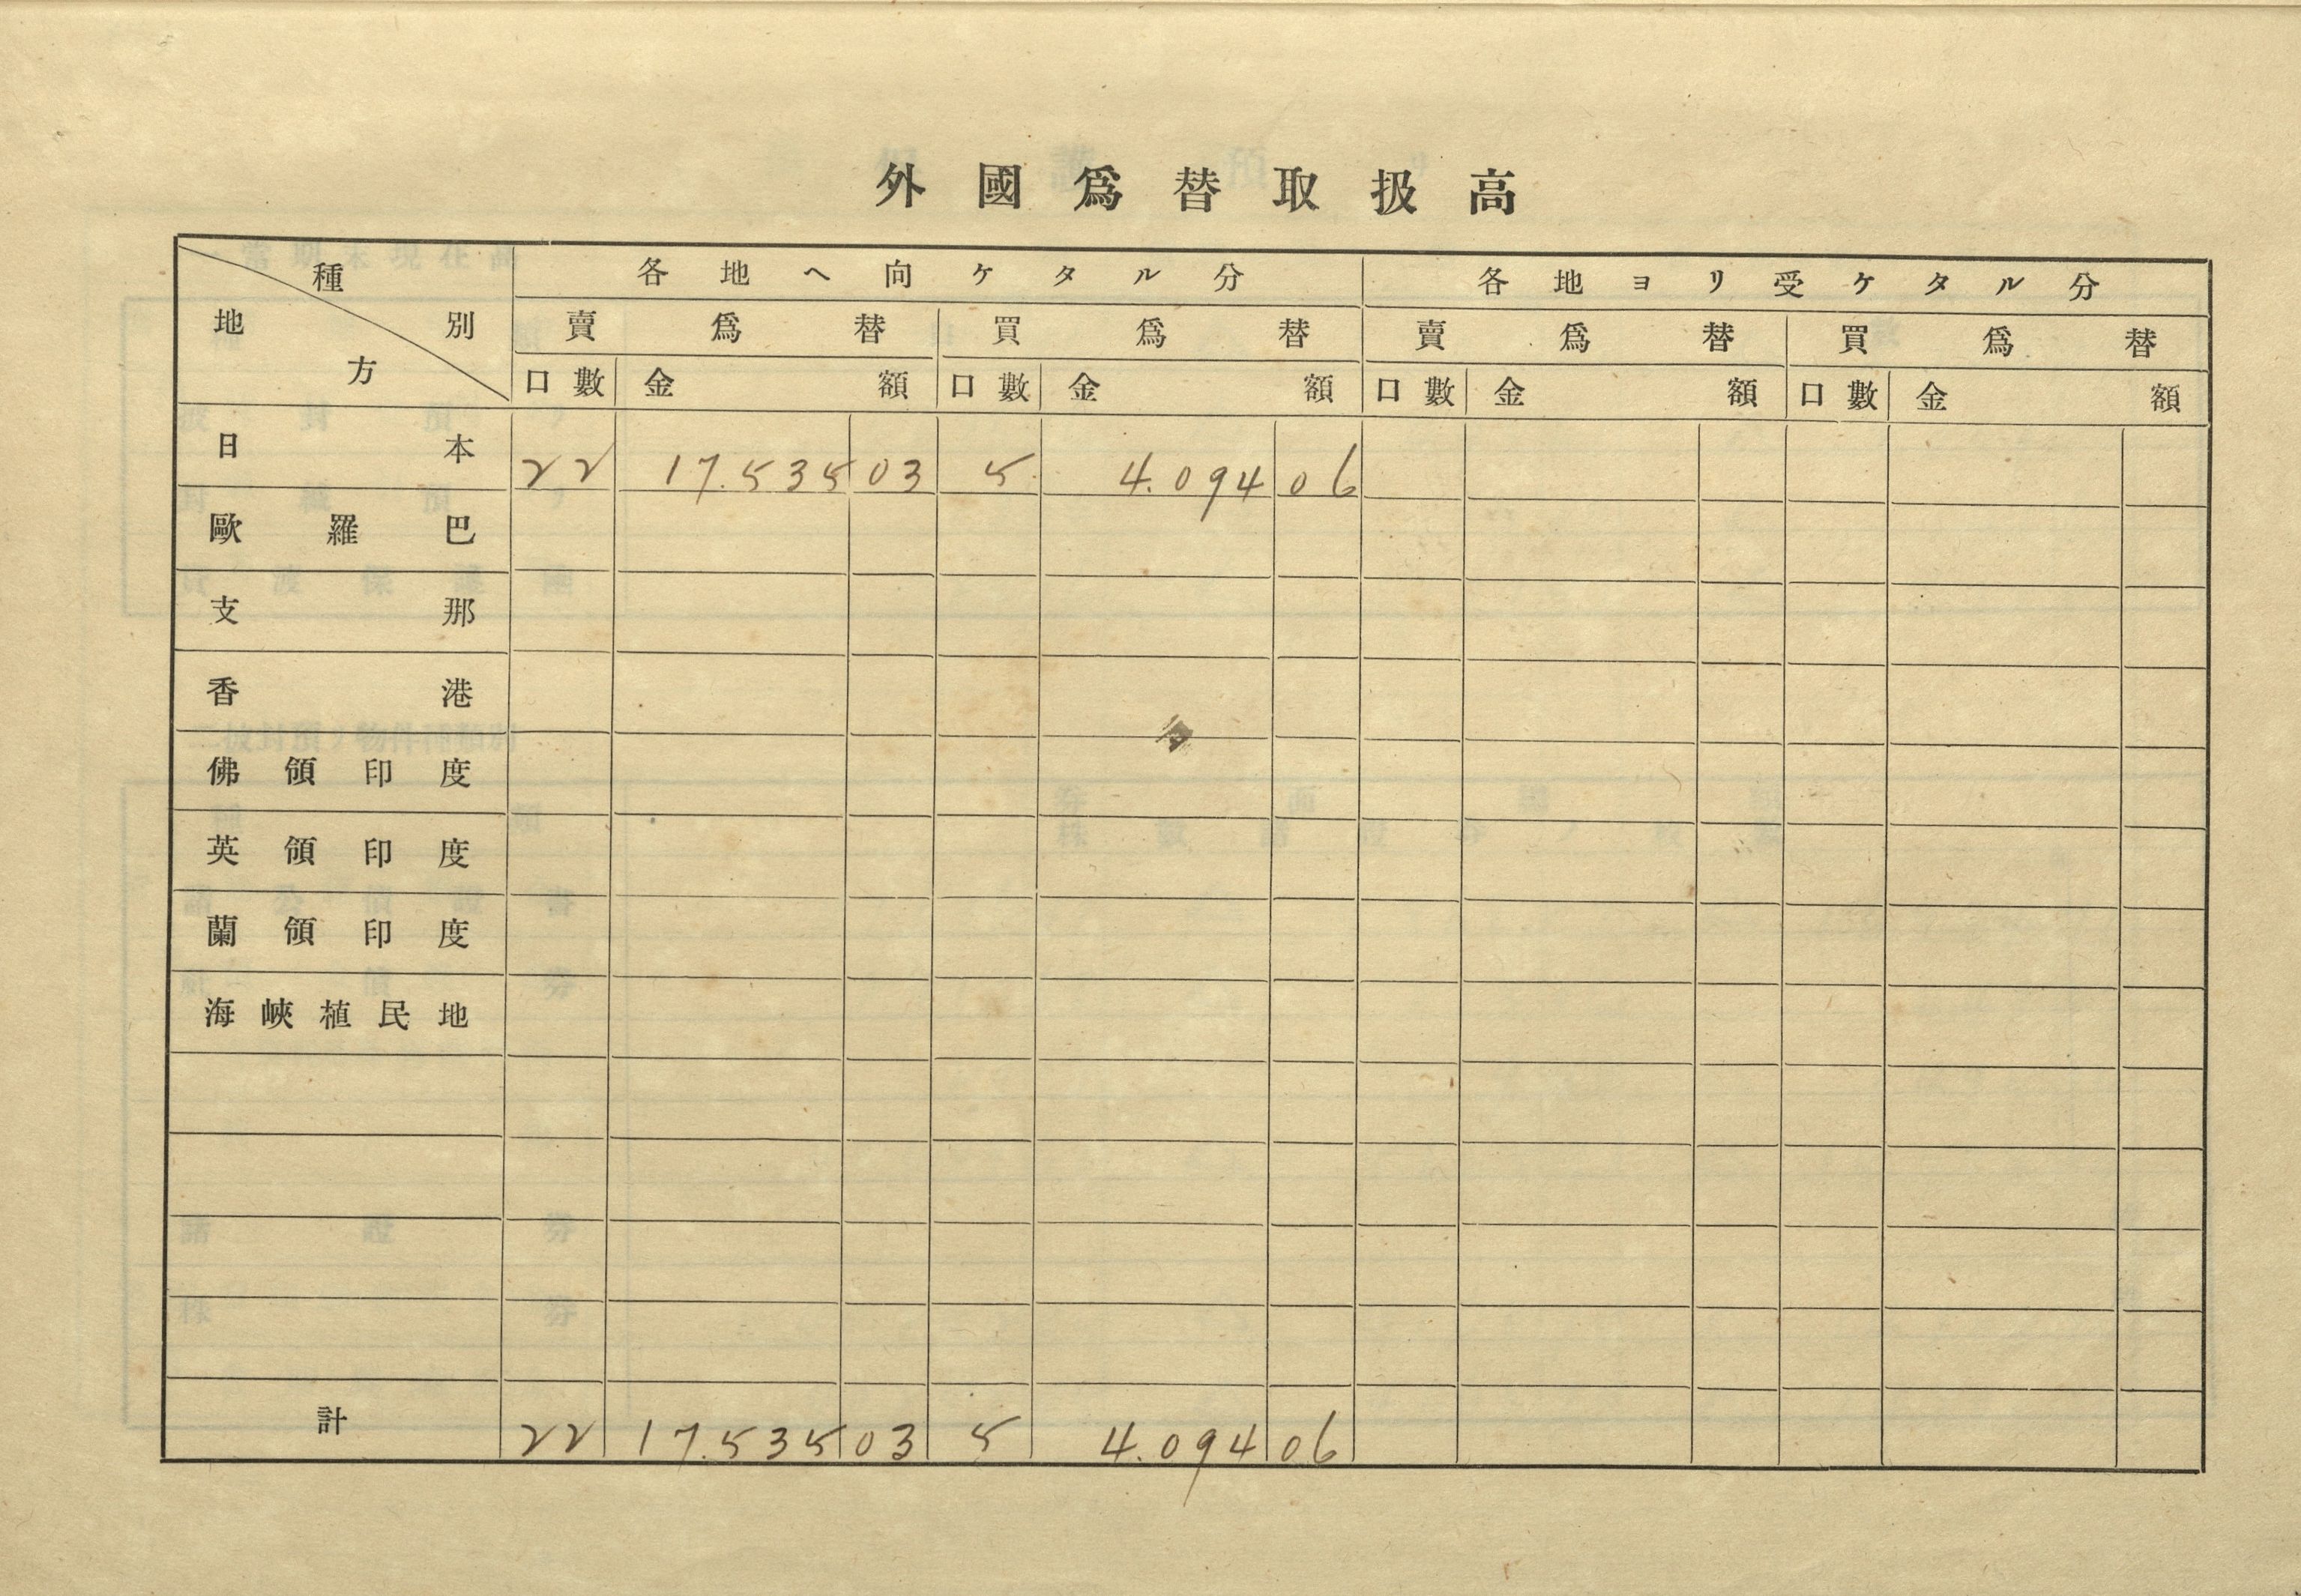 外國爲替取扱高
種別
地方
各地ヘ向ケタル分 各地ヨリ受ケタル分
賣爲替 買爲替 賣爲替 買爲替
口數 金額 口數 金額 口數 金額 口數 金額
日本 22 17.535 03 5 4.094 06
歐羅巴
支那
香港
佛領印度
英領印度
蘭領印度
海峽植民地
計 22 17.535 03 5 4.094 06